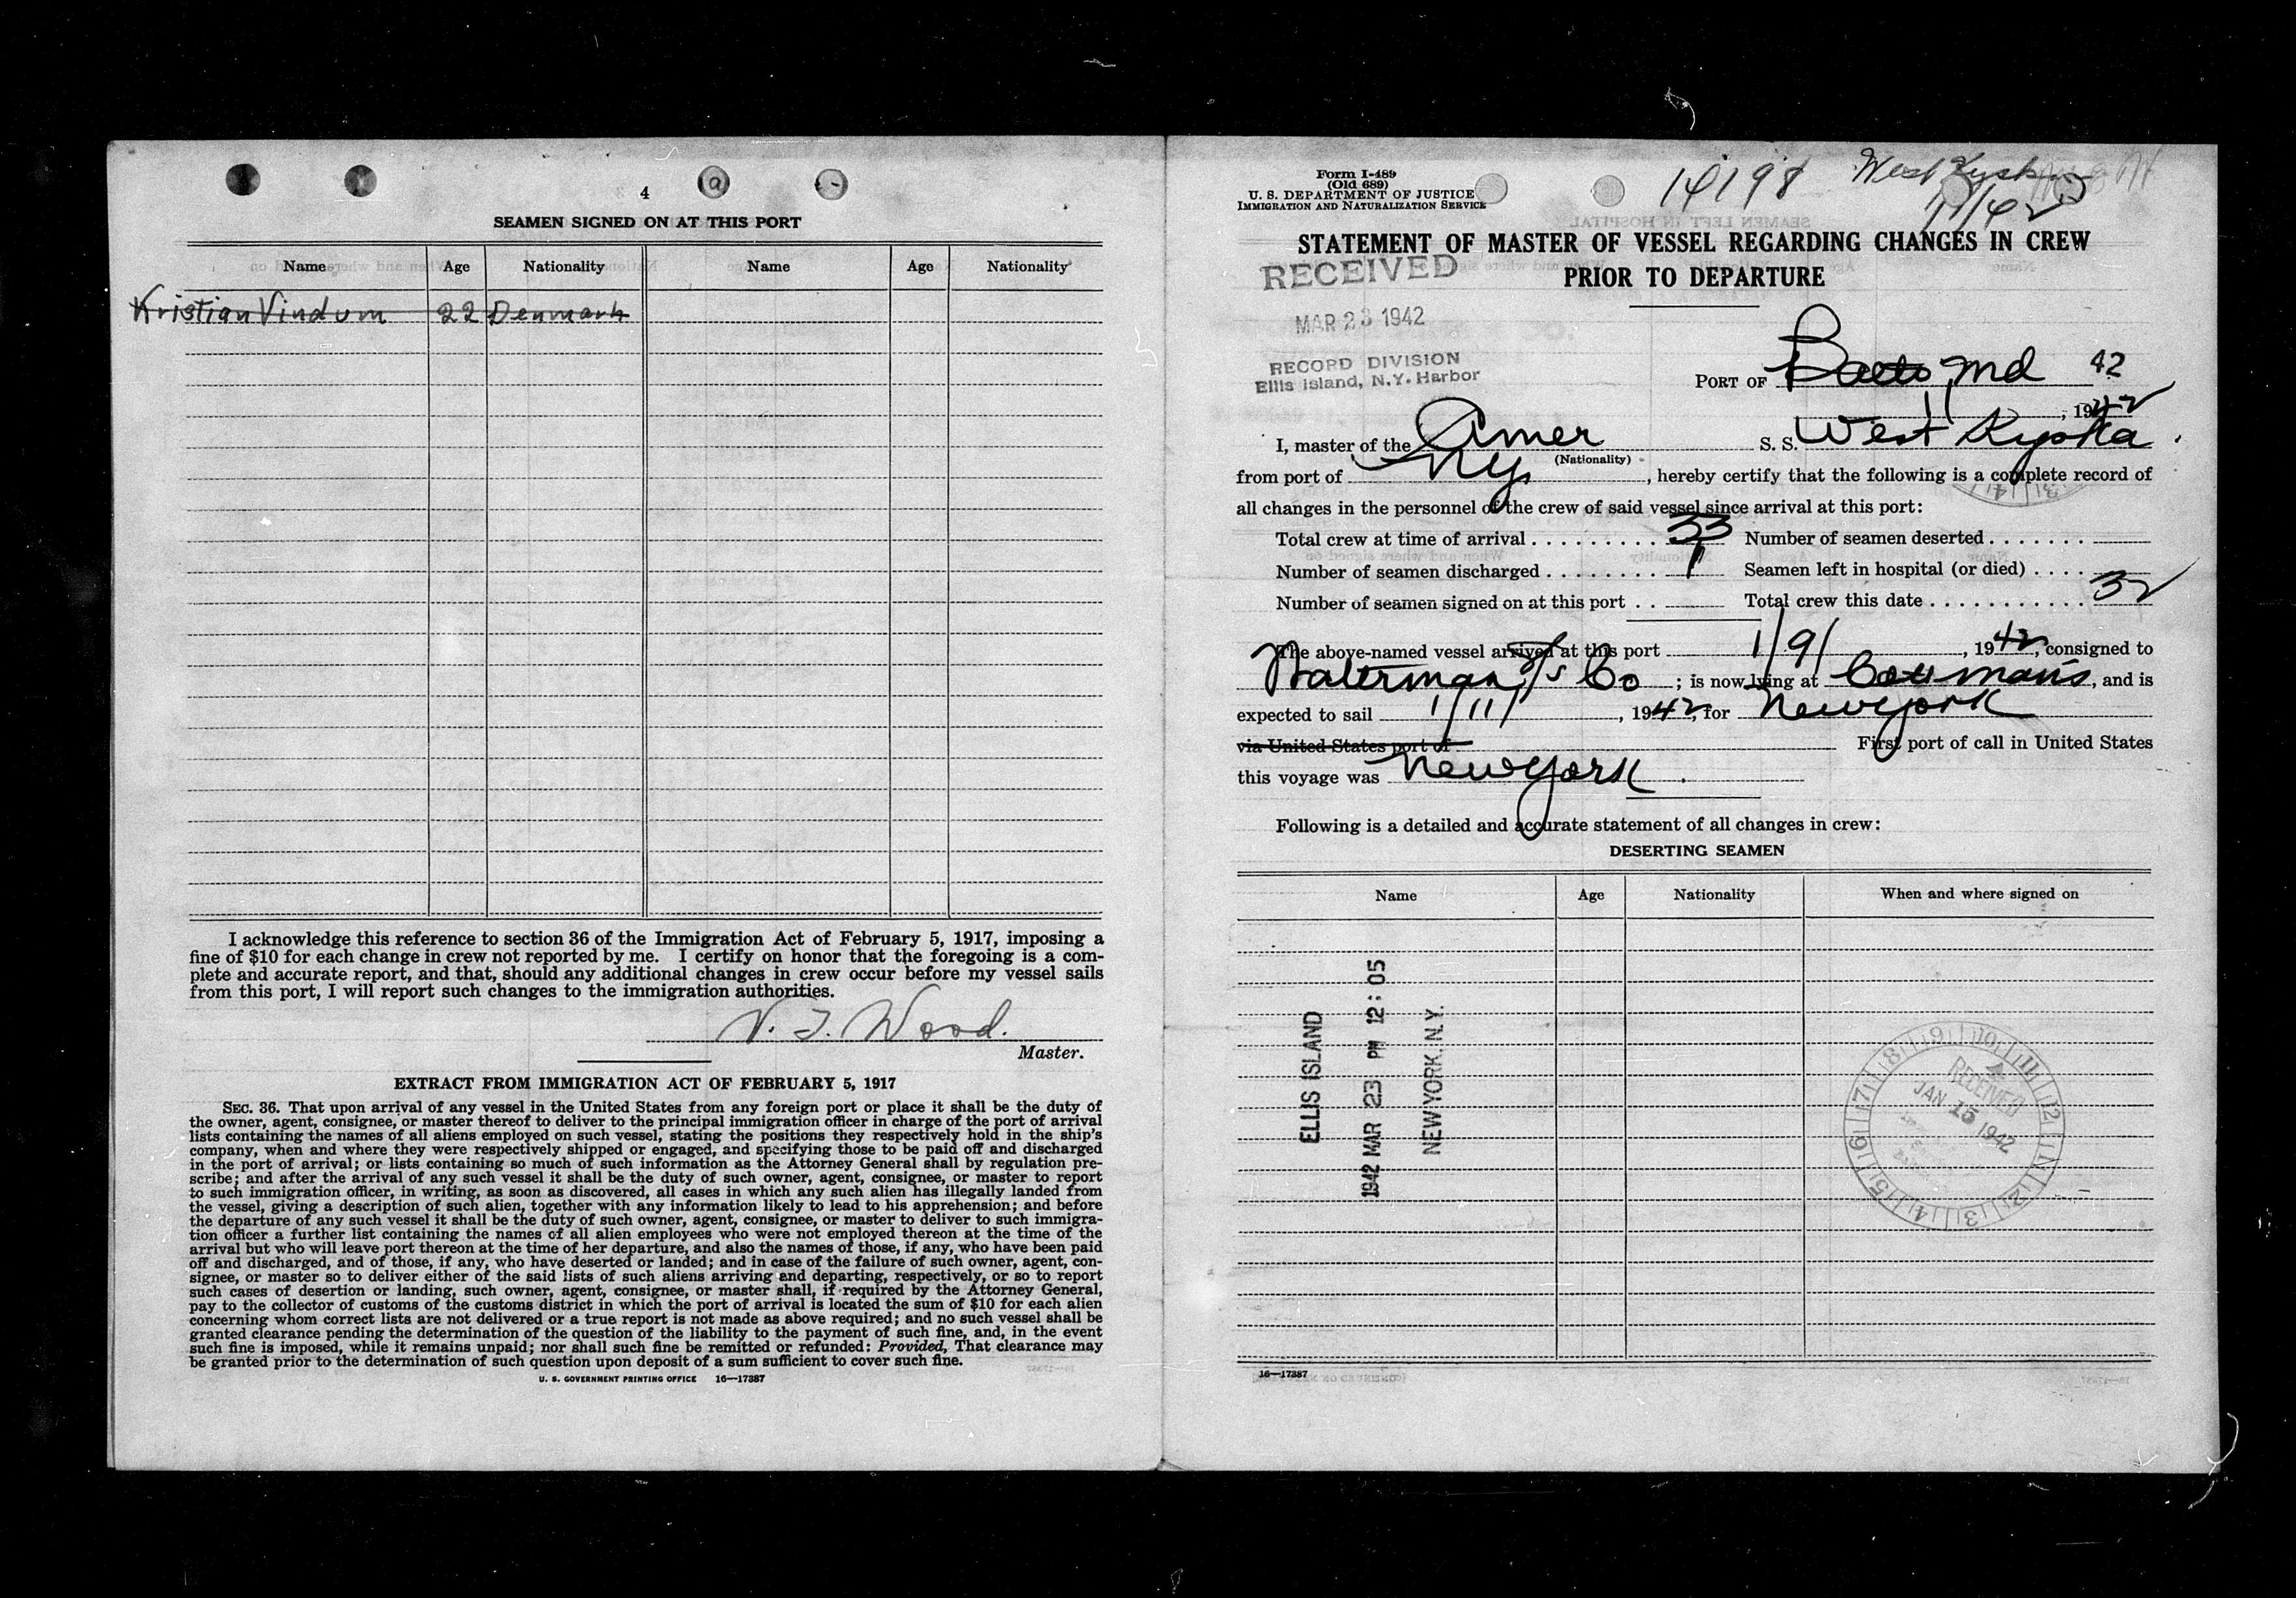 4
SEAMEN SIGNED ON AT THIS PORT
Name Age Nationality Name Age Nationality
Kristian Vindum 22 Denmark
I acknowledge this reference to section 36 of the Immigration Act of February 5, 1917, imposing a
fine of $10 for each change in crew not reported by me. I certify on honor that the foregoing is a com-
plete and accurate report, and that, should any additional changes in crew occur before my vessel sails
from this port, I will report such changes to the immigration authorities.
Wood.
Master.
EXTRACT FROM IMMIGRATION ACT OF FEBRUARY 5, 1917
SEC. 36. That upon arrival of any vessel in the United States from any foreign port or place it shall be the duty of
the owner, agent, consignee, or master thereof to deliver to the principal immigration officer in charge of the port of arrival
lists containing the names of all aliens employed on such vessel, stating the positions they respectively hold in the ship's
company, when and where they were respectively shipped or engaged, and specifying those to be paid off and discharged
in the port of arrival; or lists containing so much of such information as the Attorney General shall by regulation pre-
scribe; and after the arrival of any such vessel it shall be the duty of such owner, agent, consignee, or master to report
to such immigration officer, in writing, as soon as discovered, all cases in which any such alien has illegally landed from
the vessel, giving a description of such alien, together with any information likely to lead to his apprehension; and before
the departure of any such vessel it shall be the duty of such owner, agent, consignee, or master to deliver to such immigra-
tion officer a further list containing the names of all alien employees who were not employed thereon at the time of the
arrival but who will leave port thereon at the time of her departure, and also the names of those, if any, who have been paid
off and discharged, and of those, if any, who have deserted or landed; and in case of the failure of such owner, agent, con-
signee, or master so to deliver either of the said lists of such aliens arriving and departing, respectively, or so to report
such cases of desertion or landing, such owner, agent, consignee, or master shall, if required by the Attorney General,
pay to the collector of customs of the customs district in which the port of arrival is located the sum of $10 for each alien
concerning whom correct lists are not delivered or a true report is not made as above required; and no such vessel shall be
granted clearance pending the determination of the question of the liability to the payment of such fine, and, in the event
such fine is imposed, while it remains unpaid; nor shall such fine be remitted or refunded: Provided, That clearance may
be granted prior to the determination of such question upon deposit of a sum sufficient to cover such fine.
U. S. GOVERNMENT PRINTING OFFICE 16—17387
Form I-489
(Old 689)
U. S. DEPARTMENT OF JUSTICE
IMMIGRATION AND NATURALIZATION SERVICE
14198 West
STATEMENT OF MASTER OF VESSEL REGARDING CHANGES IN CREW
PRIOR TO DEPARTURE
RECEIVED
MAR 23 1942
RECORD DIVISION
Ellis Island, N.Y. Harbor
PORT OF Balto Md 42
, 1942
I, master of the Amer S. S. West Kyska
(Nationality)
from port of NY , hereby certify that the following is a complete record of
all changes in the personnel of the crew of said vessel since arrival at this port:
Total crew at time of arrival . . . . . . . . . 33 Number of seamen deserted . . . . . . .
Number of seamen discharged . . . . . . . . 1 Seamen left in hospital (or died) . . . .
Number of seamen signed on at this port . . Total crew this date . . . . . . . . . . . 32
The above-named vessel arrived at this port 1/9/ , 1942, consigned to
Waterman S/S Co ; is now lying at , and is
expected to sail 1/11/ , 1942, for New York
via United States port of First port of call in United States
this voyage was New York .
Following is a detailed and accurate statement of all changes in crew:
DESERTING SEAMEN
Name Age Nationality When and where signed on
ELLIS ISLAND
1942 MAR 23 PM 12:05
NEW YORK. N.Y.
RECEIVED
JAN 15 1942
16—17387